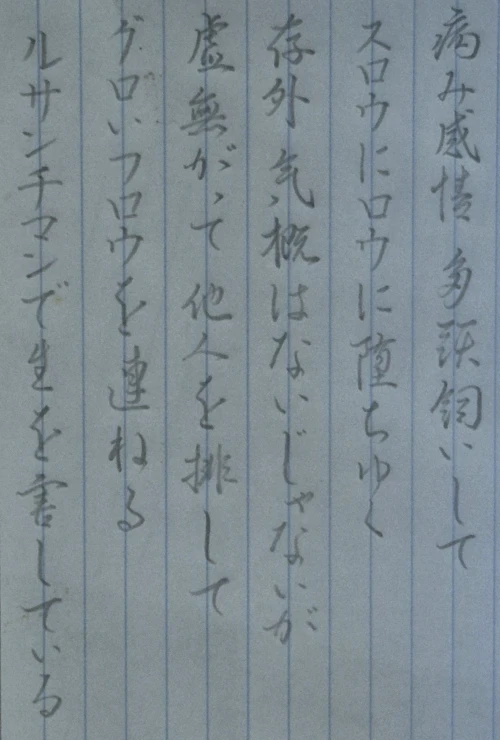 病み感情 多頭飼いして
スロウにロウに堕ちゆく
存外気概はないじゃないが
虚無がって他人を排して
グロいフロウを連ねる
ルサンチマンで生を害している